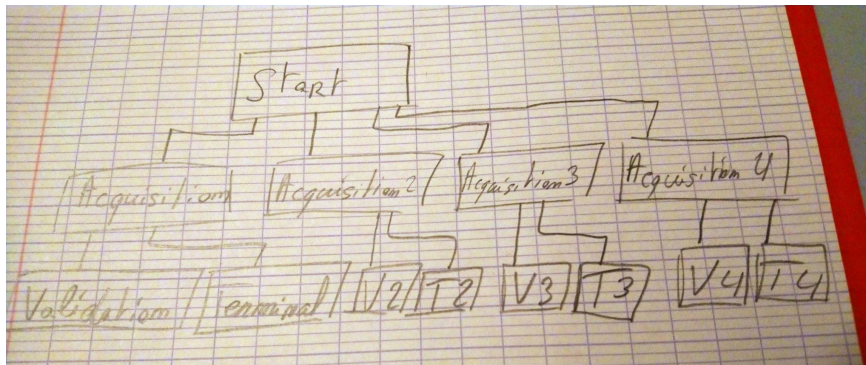 Start
Acquisition1
Acquisition 2
Acquisition 3
Acquisition 4
Validation
Terminal
V2
T2
V3
T3
V4
T4